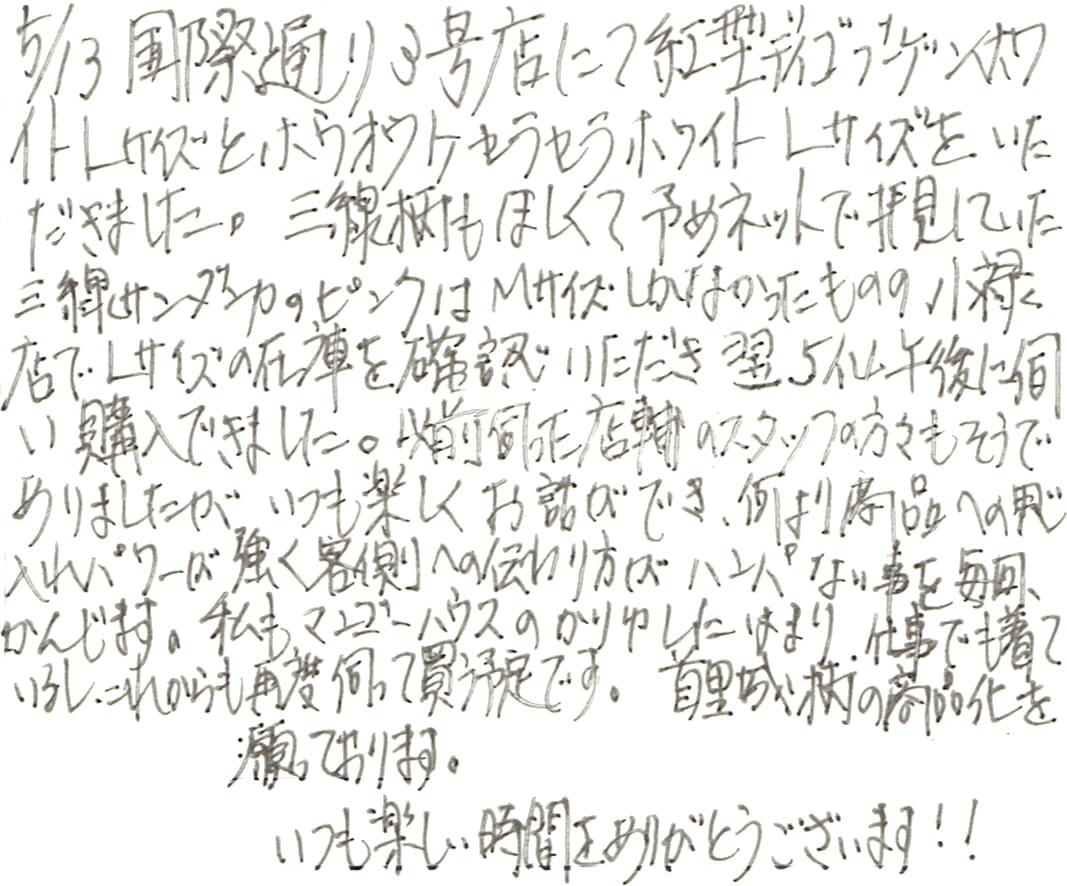 5/13 国際通り3号店にて紅型デイゴブーゲンホワ
イトLサイズとホウオウトケセラセラホワイトLサイズをいた
だきました。三線柄もほしくて予めネットで拝見していた
三線サンダンカのピンクはMサイズしかなかったものの小禄
店でLサイズの在庫を確認いただき翌5/14午後に伺
い購入できました。以前伺った店舗のスタッフの方々もそうで
ありましたが、いつも楽しくお話ができ、何より商品への思い
入れパワーが強く客側への伝わり方がハンパない事を毎回、
かんじます。私もマンゴーハウスのかりゆしにはまり、仕事でも着て
いるしこれからも再度伺って買う予定です。首里城柄の商品化を
願っております。
いつも楽しい時間をありがとうございます!!